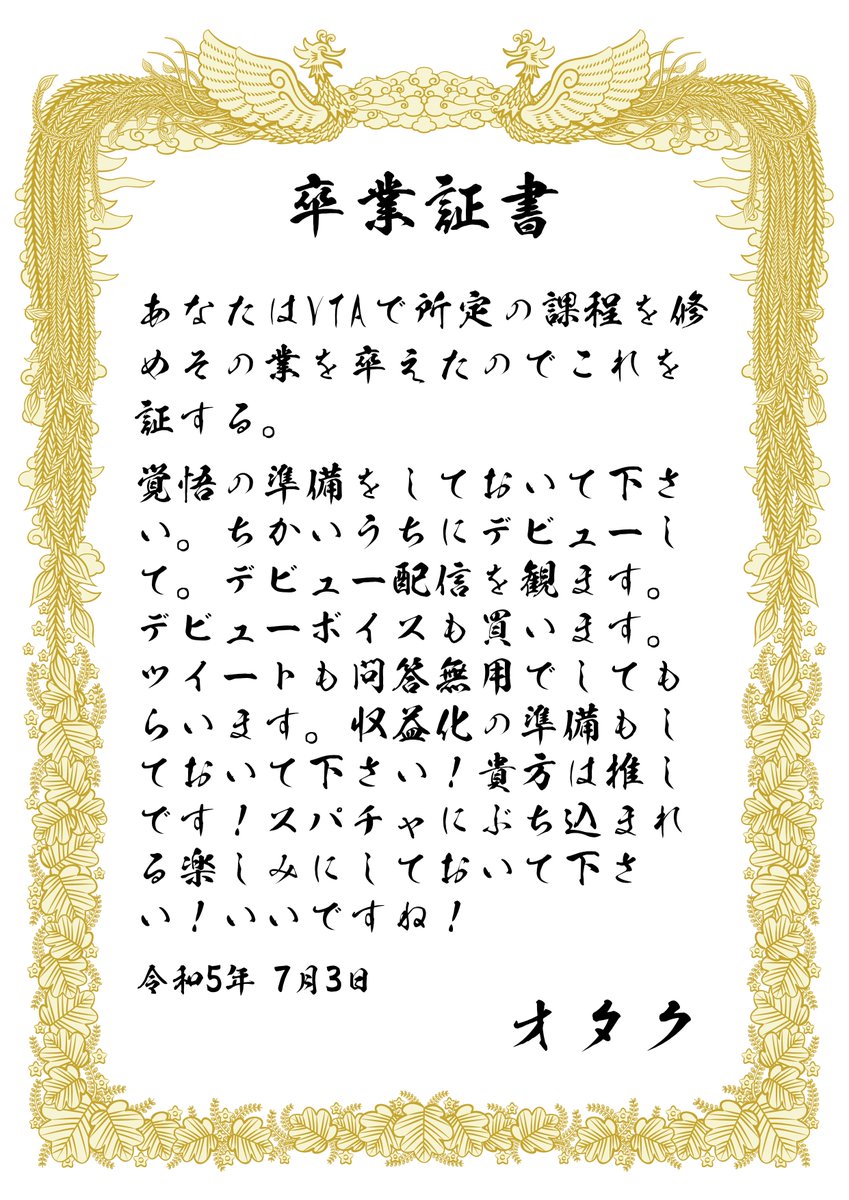 卒業証書
あなたはVTAで所定の課程を修
めその業を卒えたのでこれを
証する。
覚悟の準備をしておいて下さ
い。ちかいうちにデビューし
て。デビュー配信を観ます。
デビューボイスも買います。
ツイートも問答無用でしても
らいます。収益化の準備もし
ておいて下さい！貴方は推し
です！スパチャにぶち込まれ
る楽しみにしておいて下さ
い！いいですね！
令和5年 7月3日
オタク